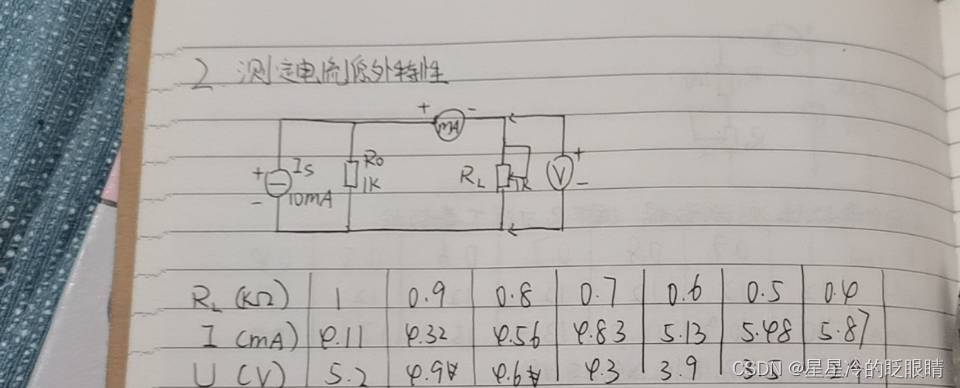 2 测定电流源外特性
+ mA -
+ Is 10mA -
R0 1K
RL 1K
+ V -
RL (KΩ) 1 0.9 0.8 0.7 0.6 0.5 0.4
I (mA) 4.11 4.32 4.56 4.83 5.13 5.48 5.87
U (V) 5.2 4.9 4.6 4.3 3.9 3.5
CSDN @星星冷的眨眼睛